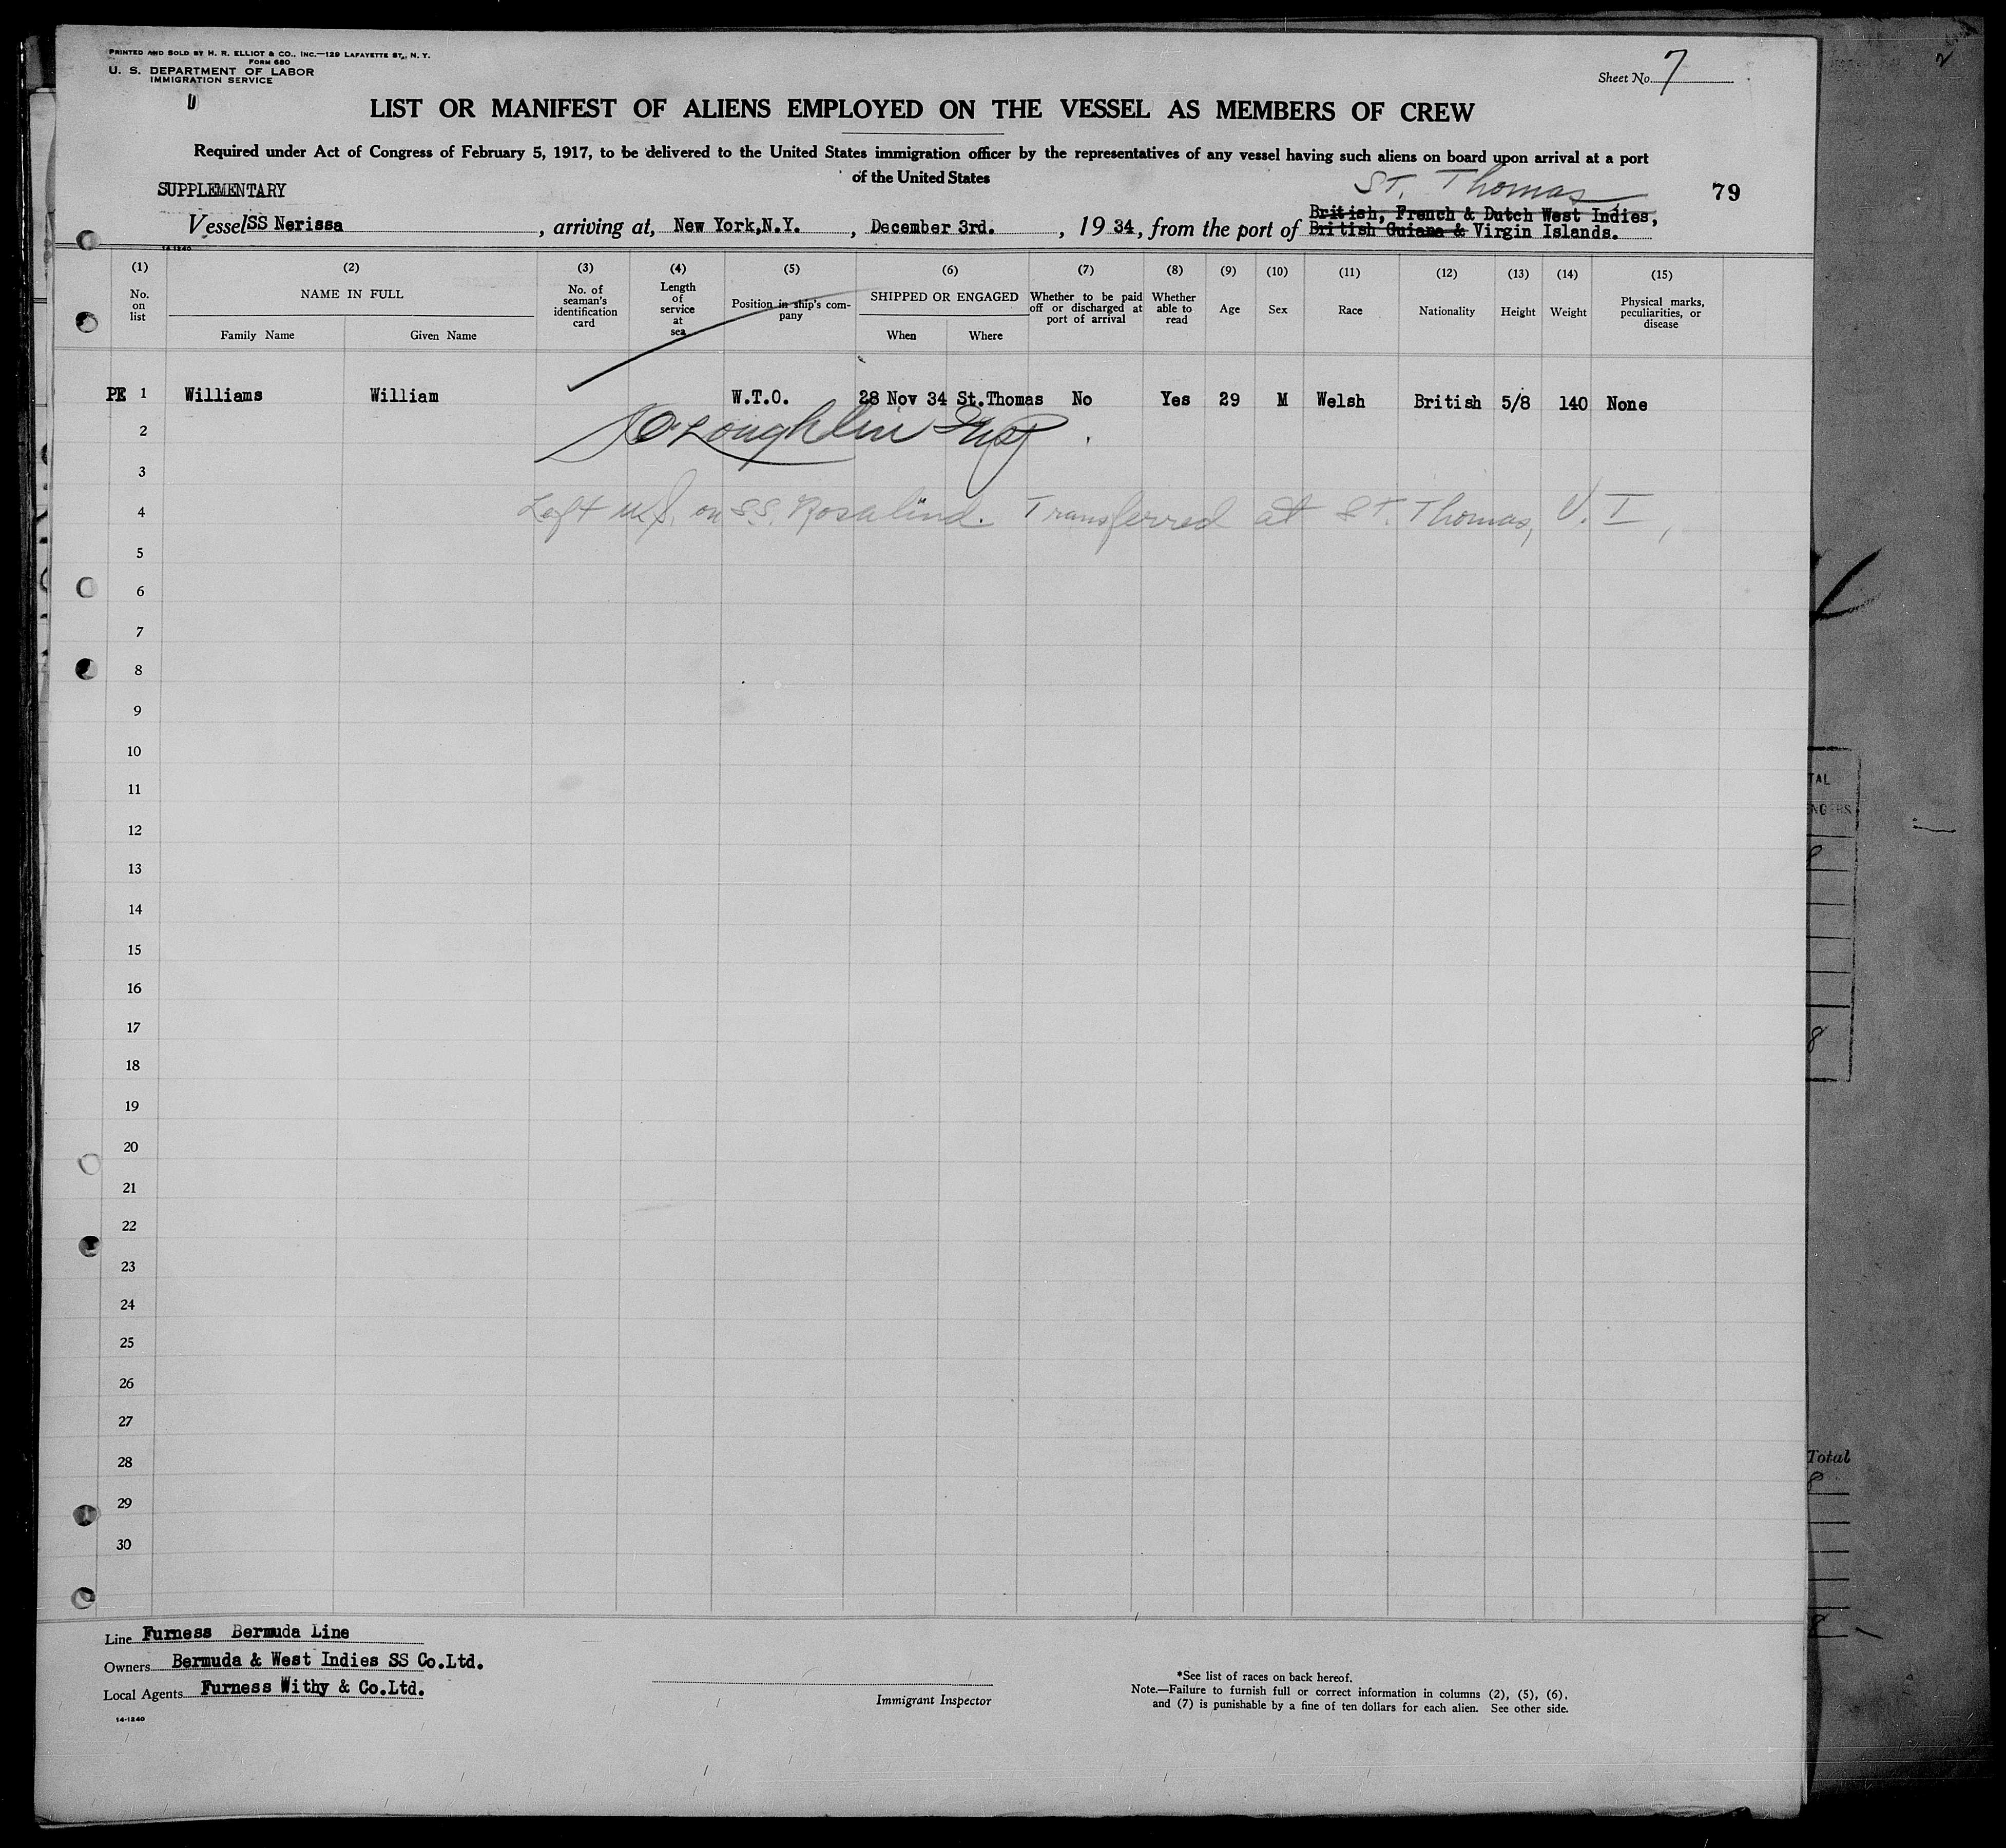 PRINTED AND SOLD BY H. R. ELLIOT & CO., INC.—129 LAFAYETTE ST., N. Y.
FORM 680
U. S. DEPARTMENT OF LABOR
IMMIGRATION SERVICE
Sheet No. 7
LIST OR MANIFEST OF ALIENS EMPLOYED ON THE VESSEL AS MEMBERS OF CREW
Required under Act of Congress of February 5, 1917, to be delivered to the United States immigration officer by the representatives of any vessel having such aliens on board upon arrival at a port
of the United States
SUPPLEMENTARY
St. Thomas
79
British, French & Dutch West Indies,
Vessel SS Nerissa, arriving at, New York,N.Y., December 3rd., 1934, from the port of British Guiana & Virgin Islands.
14-1240
(1) (2) (3) (4) (5) (6) (7) (8) (9) (10) (11) (12) (13) (14) (15)
No. on list
NAME IN FULL
Family Name
Given Name
No. of seaman's identification card
Length of service at sea
Position in ship's company
SHIPPED OR ENGAGED
When
Where
Whether to be paid off or discharged at port of arrival
Whether able to read
Age
Sex
Race
Nationality
Height
Weight
Physical marks, peculiarities, or disease
PE 1 Williams William W.T.O. 28 Nov 34 St.Thomas No Yes 29 M Welsh British 5/8 140 None
2 O'Loughlin Insp
3
4 Left U.S. on S.S. Rosalind. Transferred at St. Thomas, V.I,
5
6
7
8
9
10
11
12
13
14
15
16
17
18
19
20
21
22
23
24
25
26
27
28
29
30
Line Furness Bermuda Line
Owners Bermuda & West Indies SS Co.Ltd.
Local Agents Furness Withy & Co.Ltd.
14-1240
Immigrant Inspector
*See list of races on back hereof.
Note.—Failure to furnish full or correct information in columns (2), (5), (6),
and (7) is punishable by a fine of ten dollars for each alien. See other side.
TAL
Total
8